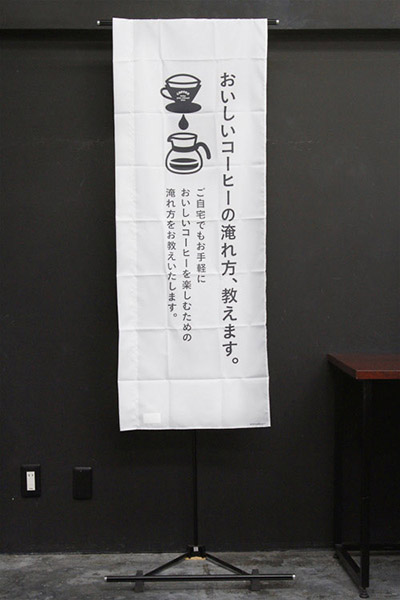 おいしいコーヒーの淹れ方、教えます。
ご自宅でもお手軽に
おいしいコーヒーを楽しむための
淹れ方をお教えいたします。